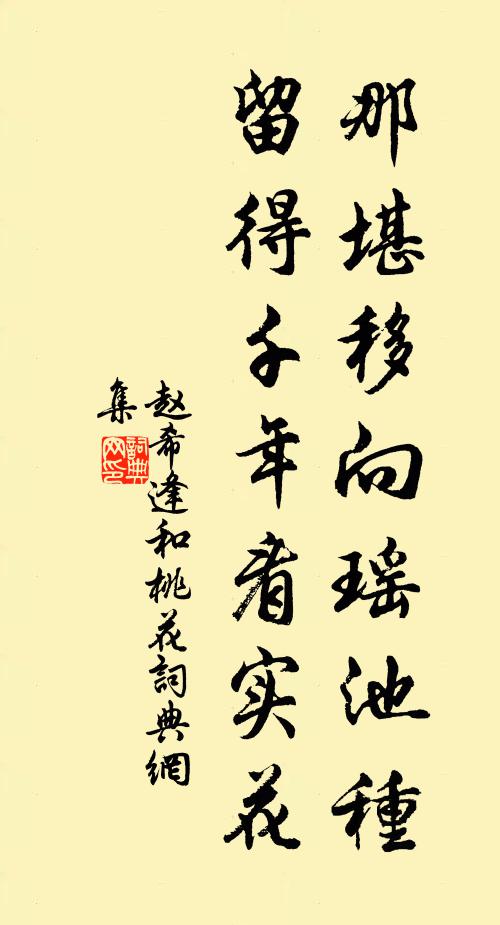 那堪移向瑶池種
留得千年看实花
赵希逢和桃花詞典網
集
詞典
网印